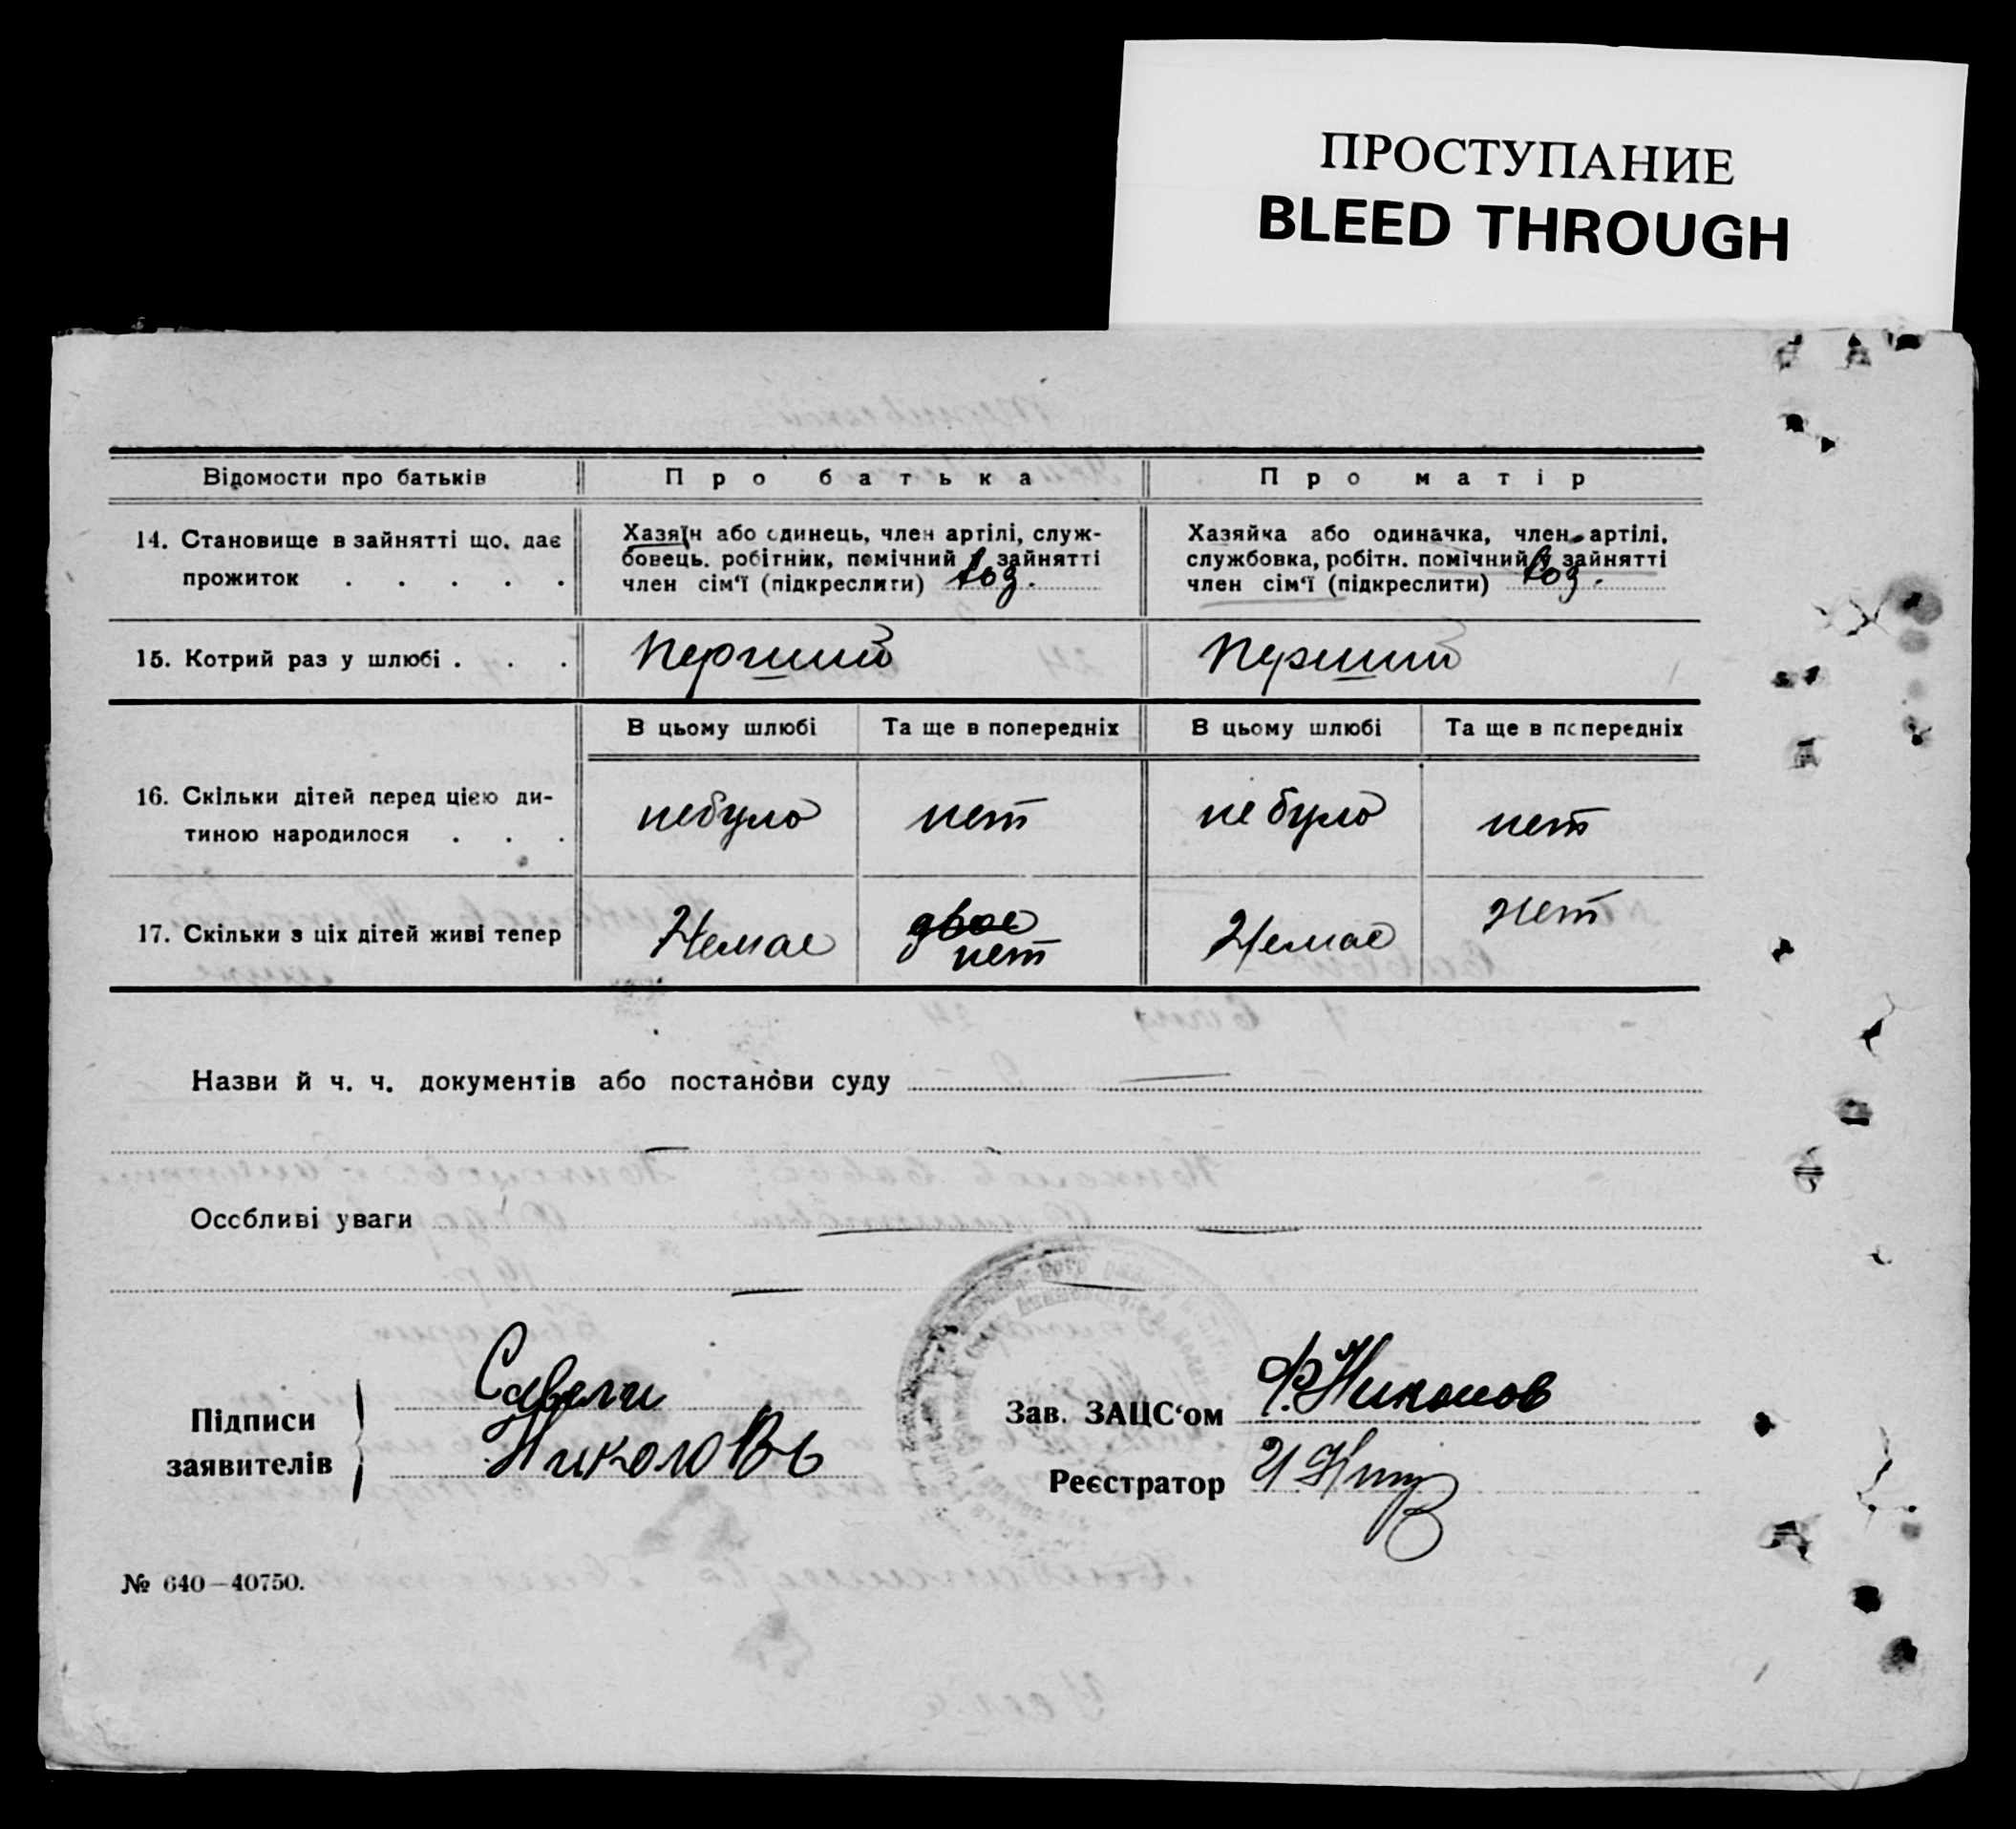 ПРОСТУПАНИЕ
BLEED THROUGH
Відомости про батьків
Про батька
Про матір
14. Становище в зайнятті що, дає
прожиток . . . . .
Хазяїн або одинець, член артілі, служ-
бовець. робітник, помічний у зайнятті
член сім‘ї (підкреслити) воз.
Хазяйка або одиначка, член артілі,
службовка, робітн. помічний у зайнятті
член сім‘ї (підкреслити) воз.
15. Котрий раз у шлюбі . . .
перший
перший
В цьому шлюбі
Та ще в попередніх
В цьому шлюбі
Та ще в попередніх
16. Скільки дітей перед цією ди-
тиною народилося . . .
небуло
нет
не було
нет
17. Скільки з ціх дітей живі тепер
Немає
двое
нет
Немає
нет
Назви й ч. ч. документів або постанови суду
Особливі уваги
Підписи
заявителів
Савели
Николовь
Зав. ЗАЦС‘ом Ф. Николов
Реєстратор
№ 640—40750.